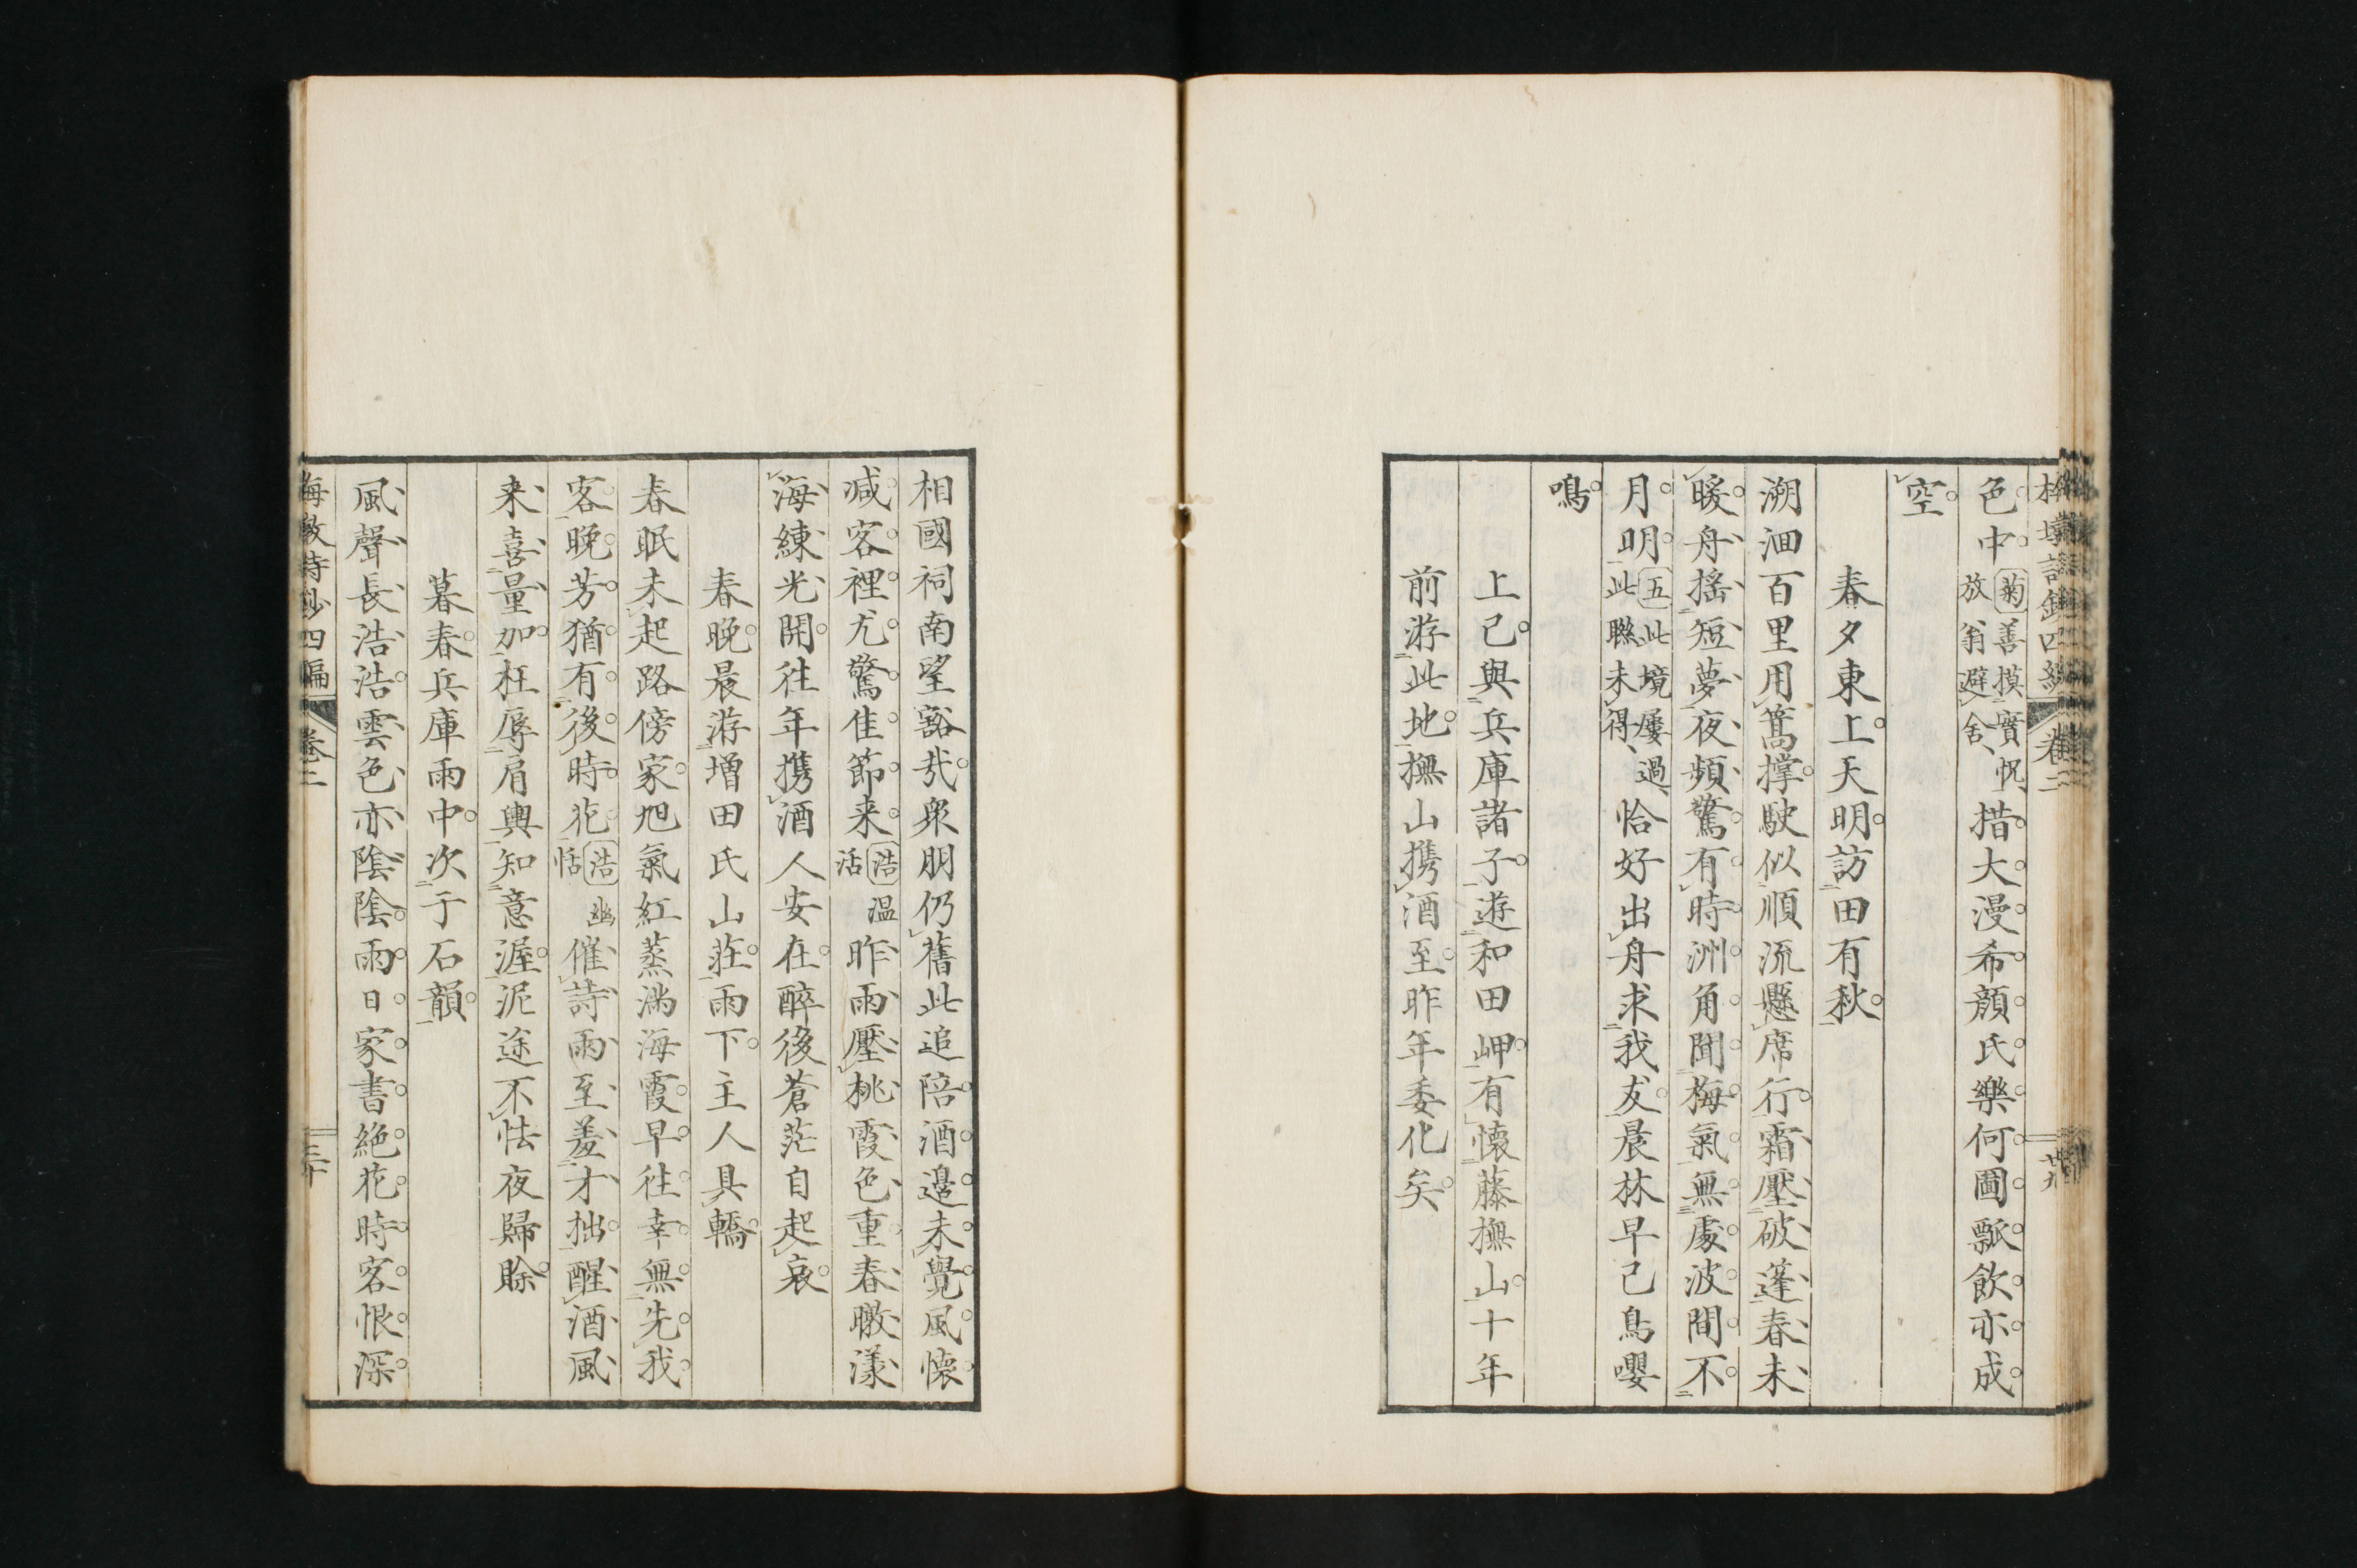 梅墩詩鈔四編 卷二 廿九
色中菊善摸實怳放翁避舍措大漫希顔氏樂何圖瓢飲亦成
空
春夕東上天明訪田有秋
溯洄百里用篙撑駛似順流懸席行霜壓破蓬春未
暖舟搖短夢夜頻驚有時洲角聞梅氣無處波間不
月明五此境屢過此聯未得恰好出舟求我友晨林早已鳥嚶
鳴
上已與兵庫諸子遊和田岬有懷藤撫山十年
前游此地撫山携酒至昨年委化矣
相國祠南望豁哉衆朋仍舊此追陪酒邊未覺風懷
减客裡尤驚佳節来浩温活昨雨壓桃霞色重春暾漾
海練光開往年携酒人安在醉後蒼茫自起哀
春晚晨游增田氏山莊雨下主人具轎
春眠未起路傍家旭氣紅蒸滿海霞早往幸無先我
客晚芳猶有後時花浩幽恬催詩雨至羞才拙醒酒風
来喜量加枉辱肩輿知意渥泥途不怯夜歸賒
暮春兵庫雨中次于石韻
風聲長浩浩雲色亦陰陰雨日家書絶花時客恨深
梅墩詩鈔四編 卷二 三十